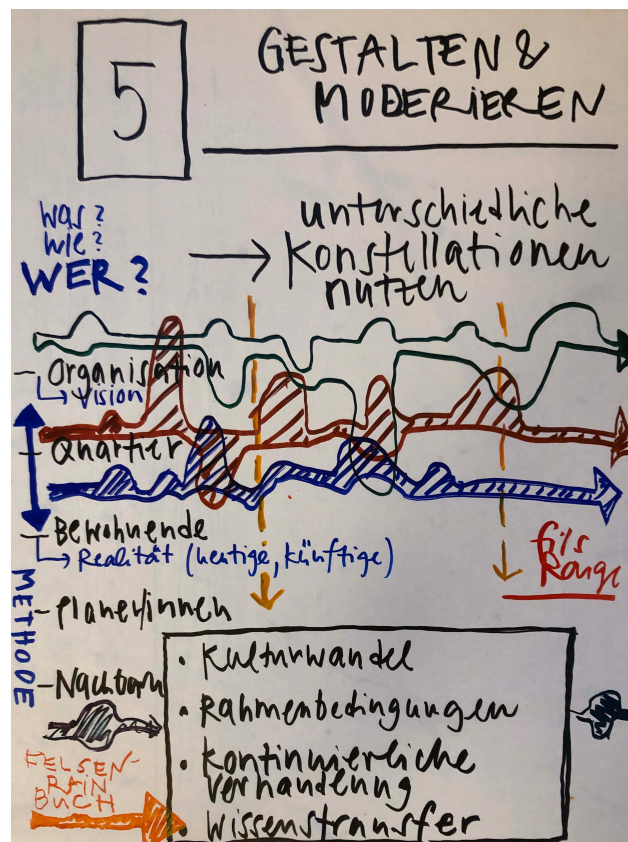 5
GESTALTEN &
MODERIEREN
was?
wie?
WER?
→ unterschiedliche
Konstellationen
nutzen
- Organisation
↳ Vision
- Quartier
- Bewohnende
↳ Realität (heutige, künftige)
fils
Rouge
METHODE
- Planer/innen
- Nachbarn
• Kulturwandel
• Rahmenbedingungen
• Kontinuierliche
Verhandlung
• Wissenstransfer
FELSEN-
RAIN
BUCH